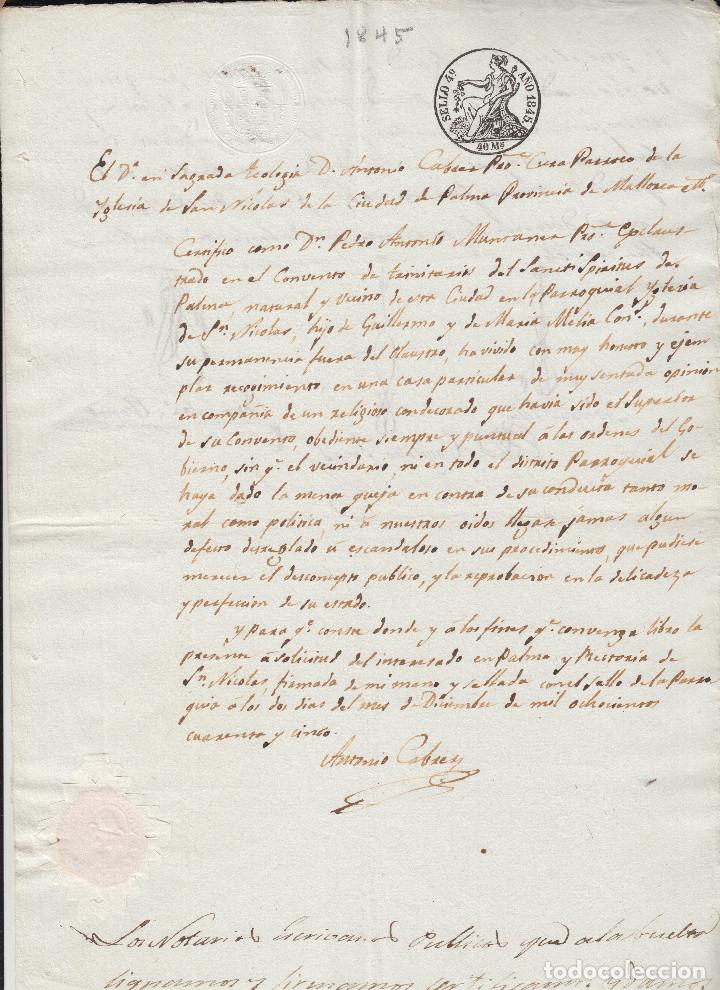 1845
SELLO 4º AÑO 1845.
40 Ms
El Dr. en Sagrada teologia D. Antonio Cabrer Pro. Cura Parroco de la
Yglesia de San Nicolas de la Ciudad de Palma Provincia de Mallorca
Certifico como Dn. Pedro Antonio Muntaner Pro. Exclaus-
trado en el Convento de trinitarios del Sancti Spiritus de
Palma, natural y vecino de esta Ciudad en la Parroquial Yglesia
de Sn. Nicolas, hijo de Guillermo y de Maria Melia Cons., durante
su permanencia fuera del Claustro, ha vivido con muy honesto y ejem
plar recogimiento en una casa particular de muy sentada opinion
en compañia de un religioso condecorado que havia sido el Superior
de su Convento, obediente siempre y puntual á las ordenes del Go-
bierno, sin q.e el vecindario, ni en todo el distrito Parroquial se
haya dado la menor queja en contra de su conducta tanto mo-
ral como politica, ni á nuestros oidos llegar jamas algun
defecto desreglado ú escandaloso en sus procedimientos, que pudiese
merecer el desconcepto publico, y la reprobacion en la delicadeza
y perfeccion de su estado.
Y para q.e conste donde y á los fines q.e convenga libro la
presente á solicitud del interesado en Palma y Rectoria de
Sn. Nicolas, firmada de mi mano y sellada con el sello de la Parro
quia á los dos dias del mes de Diciembre de mil ochocientos
cuarenta y cinco.
Antonio Cabrer
Los Notarios Escrivanos Publicos que a la buelta
signamos y firmamos certificamos y damos
todocoleccion